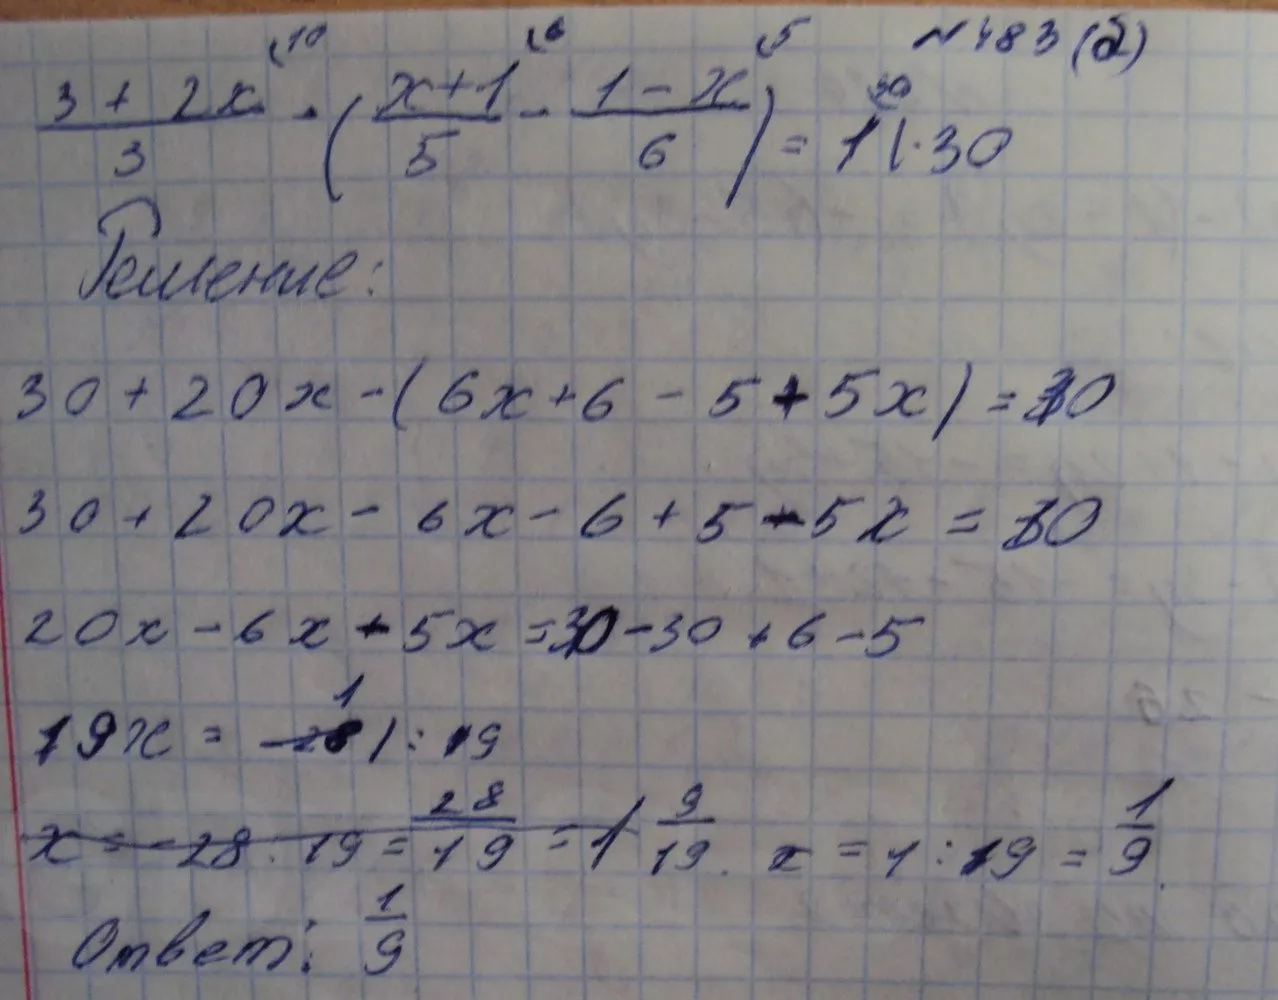 №483 (б)
(3 + 2x)/3 (10 - ((x+1)/5 (6 - (1 - x)/6 (5) = 1 (30 |·30
Решение:
30 + 20x - (6x + 6 - 5 + 5x) = 30
30 + 20x - 6x - 6 + 5 - 5x = 30
20x - 6x - 5x = 30 - 30 + 6 - 5
9x = 1 | : 9
x = -28 : 19 = 28/19 = 1 9/19. x = 1 : 9 = 1/9.
Ответ: 1/9